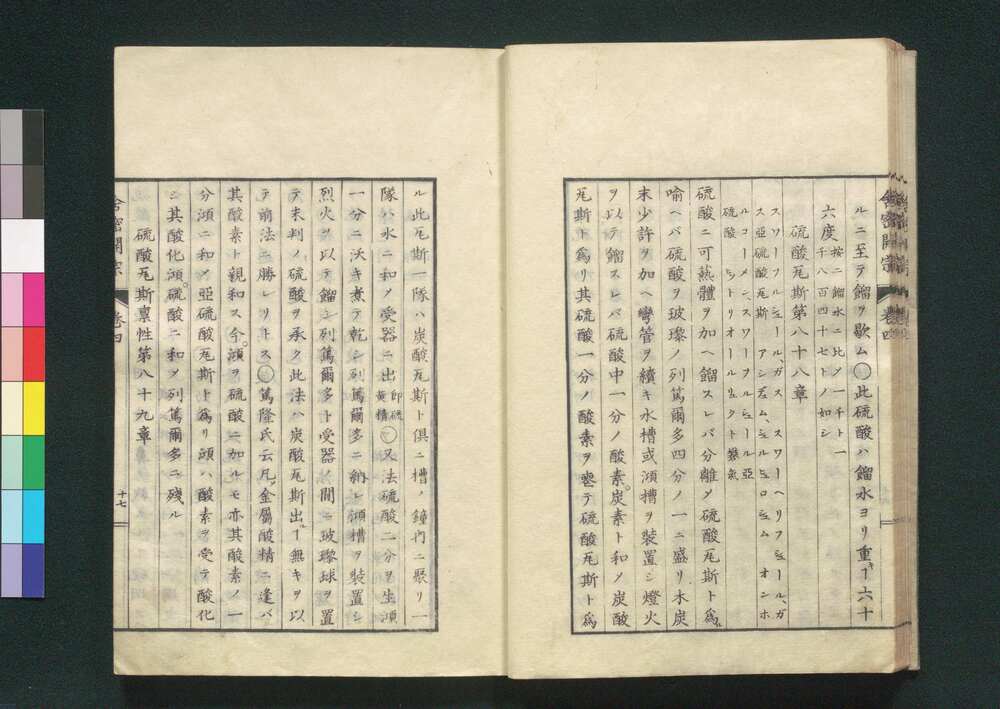 ルニ至テ餾ヲ歇ム○此硫酸ハ餾水ヨリ重キヿ六十
六度 按ニ餾水ニ比ノ一千ト一
千八百四十七トノ如シ
硫酸瓦斯第八十八章
スワーフルシュール、ガス スワーヘリフシュール、ガ
ス亜硫酸瓦斯 アシデュム、シュルヒュロシュム オンホ
ルコーメン、スワーフルシュール亜
硫酸 ヒットリオールリュクト礬気
硫酸ニ可熱體ヲ加ヘ餾スレバ分離ノ硫酸瓦斯ト為ル
喩ヘバ硫酸ヲ玻瓈ノ列篤爾多四分ノ一ニ盛リ木炭
末少許ヲ加ヘ彎管ヲ續キ水槽或澒槽ヲ装置シ燈火
ヲ以テ餾スレバ硫酸中一分ノ酸素。炭素ト和ノ炭酸
瓦斯ト為リ其硫酸一分ノ酸素ヲ喪テ硫酸瓦斯ト為
ル此瓦斯一隊ハ炭酸瓦斯ト倶ニ槽ノ鐘内ニ聚リ一
隊ハ水ニ和ノ受器ニ出 即硫
黄精○又法硫酸二分ヲ生澒
一分ニ沃キ煮テ乾シ列篤爾多ニ納レ澒槽ヲ装置シ
烈火ヲ以テ餾シ列篤爾多ト受器ノ間ニ玻瓈球ヲ置
テ未判ノ硫酸ヲ承ク此法ハ炭酸瓦斯出ルヿ無キヲ以
テ前法ニ勝レリトス○篤隆氏云凡ソ金屬酸精ニ逢バ
其酸素ト親和ス今。澒ヲ硫酸ニ加ルモ亦其酸素ノ一
分澒ニ和メ亜硫酸瓦斯ト為リ澒ハ酸素ヲ受テ酸化
シ其酸化澒。硫酸ニ和ノ列篤爾多ニ残ル
硫酸瓦斯禀性第八十九章
舎密開宗
巻四
十七